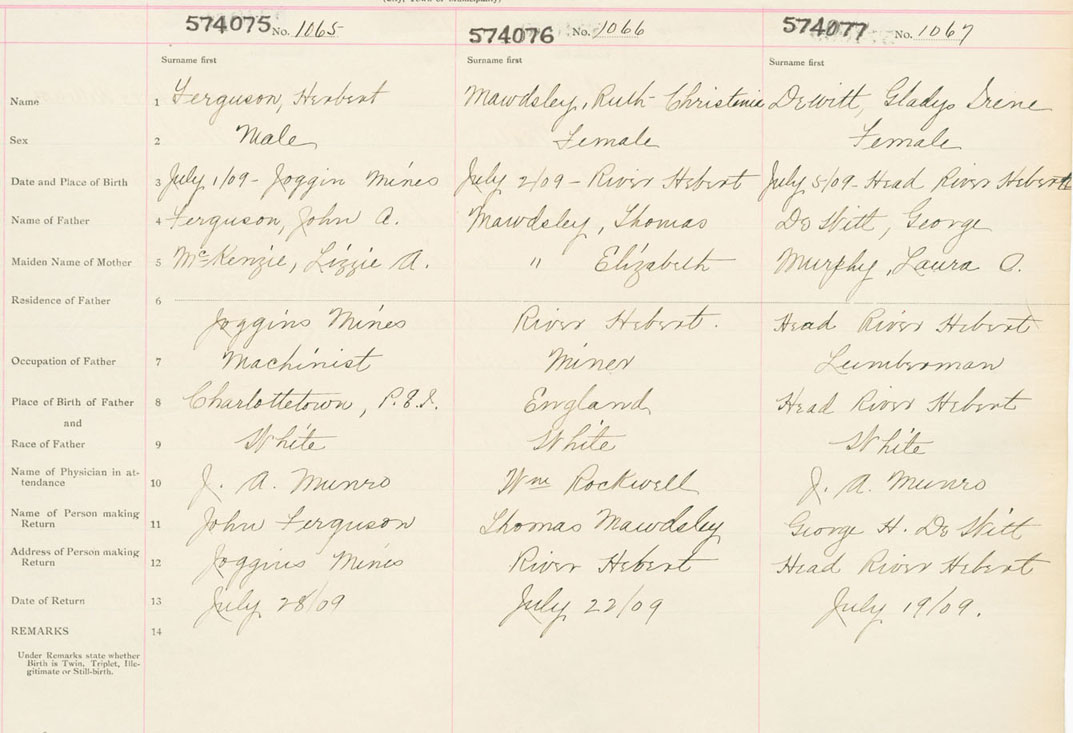 (City, Town or Municipality)
574075 No. 1065 574076 No. 1066 574077 No. 1067
Surname first Surname first Surname first
Name 1 Ferguson, Herbert Mawdsley, Ruth Christinia Dewitt, Gladys Irene
Sex 2 Male Female Female
Date and Place of Birth 3 July 1/09 - Joggin Mines July 2/09 - River Hebert July 5/09 - Head River Hebert
Name of Father 4 Ferguson, John A. Mawdsley, Thomas De Witt, George
Maiden Name of Mother 5 McKenzie, Lizzie A. " Elizabeth Murphy, Laura O.
Residence of Father 6
Joggins Mines River Hebert. Head River Hebert
Occupation of Father 7 Machinist Miner Lumberman
Place of Birth of Father 8 Charlottetown, P.E.I. England Head River Hebert
and
Race of Father 9 White White White
Name of Physician in at-
tendance 10 J. A. Munro Wm Rockwell J. A. Munro
Name of Person making
Return 11 John Ferguson Thomas Mawdsley George H. De Witt
Address of Person making
Return 12 Joggins Mines River Hebert Head River Hebert
Date of Return 13 July 28/09 July 22/09 July 19/09.
REMARKS 14
Under Remarks state whether
Birth is Twin, Triplet, Ille-
gitimate or Still-birth.